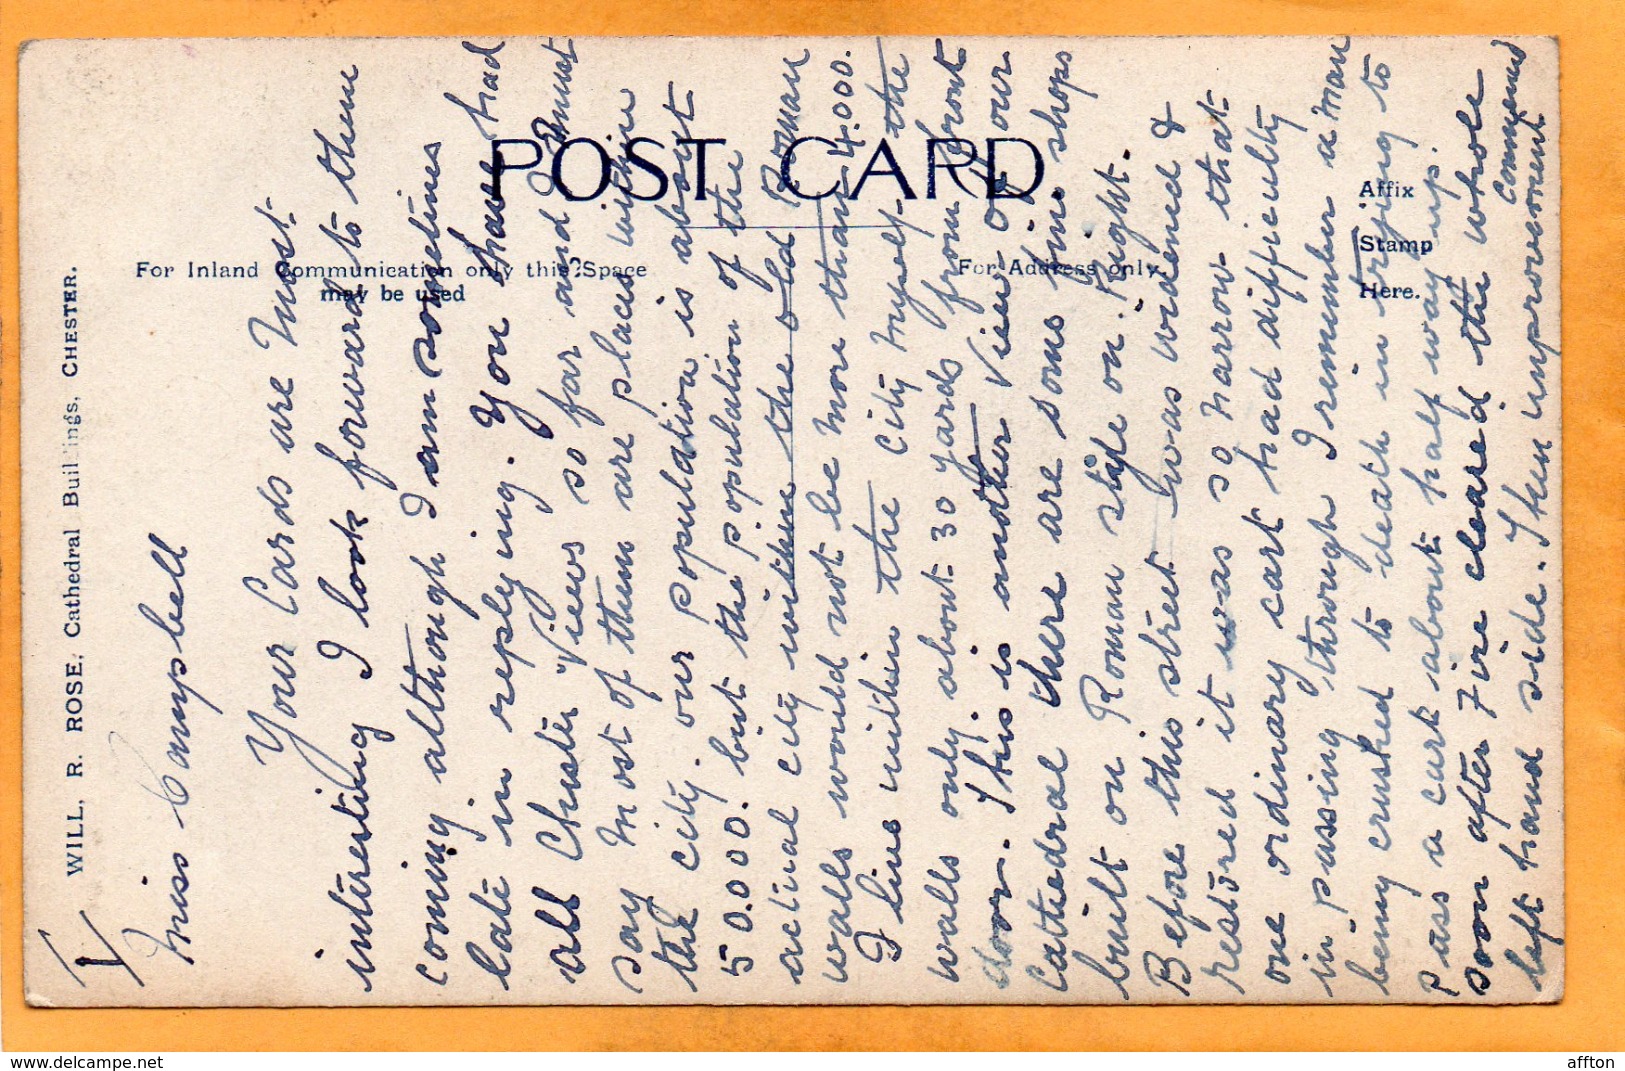 WILL. R. ROSE, Cathedral Buildings, CHESTER.
POST CARD.
For Inland Communication only this Space
may be used
For Address only
Affix
Stamp
Here.
Miss Campbell
Your Cards are most
interesting I look forward to them
coming although I am sometimes
late in replying. You have had
all Chester Views so far and I must
say most of them are places within
the city. our population is about
50.000. but the population of the
actual city within the old Roman
walls would not be more than 4.000.
I live within the city myself the
walls only about 30 yards from front
door. This is another View of our
Cathedral there are some fine shops
built on Roman style on Right.
Before this street was widened &
restored it was so narrow that
one ordinary cart had difficulty
in passing through I remember a man
being crushed to death in trying to
pass a cart about half way up.
soon after Fire cleared the whole
left hand side. Then improvement
commenced
www.delcampe.net
affton